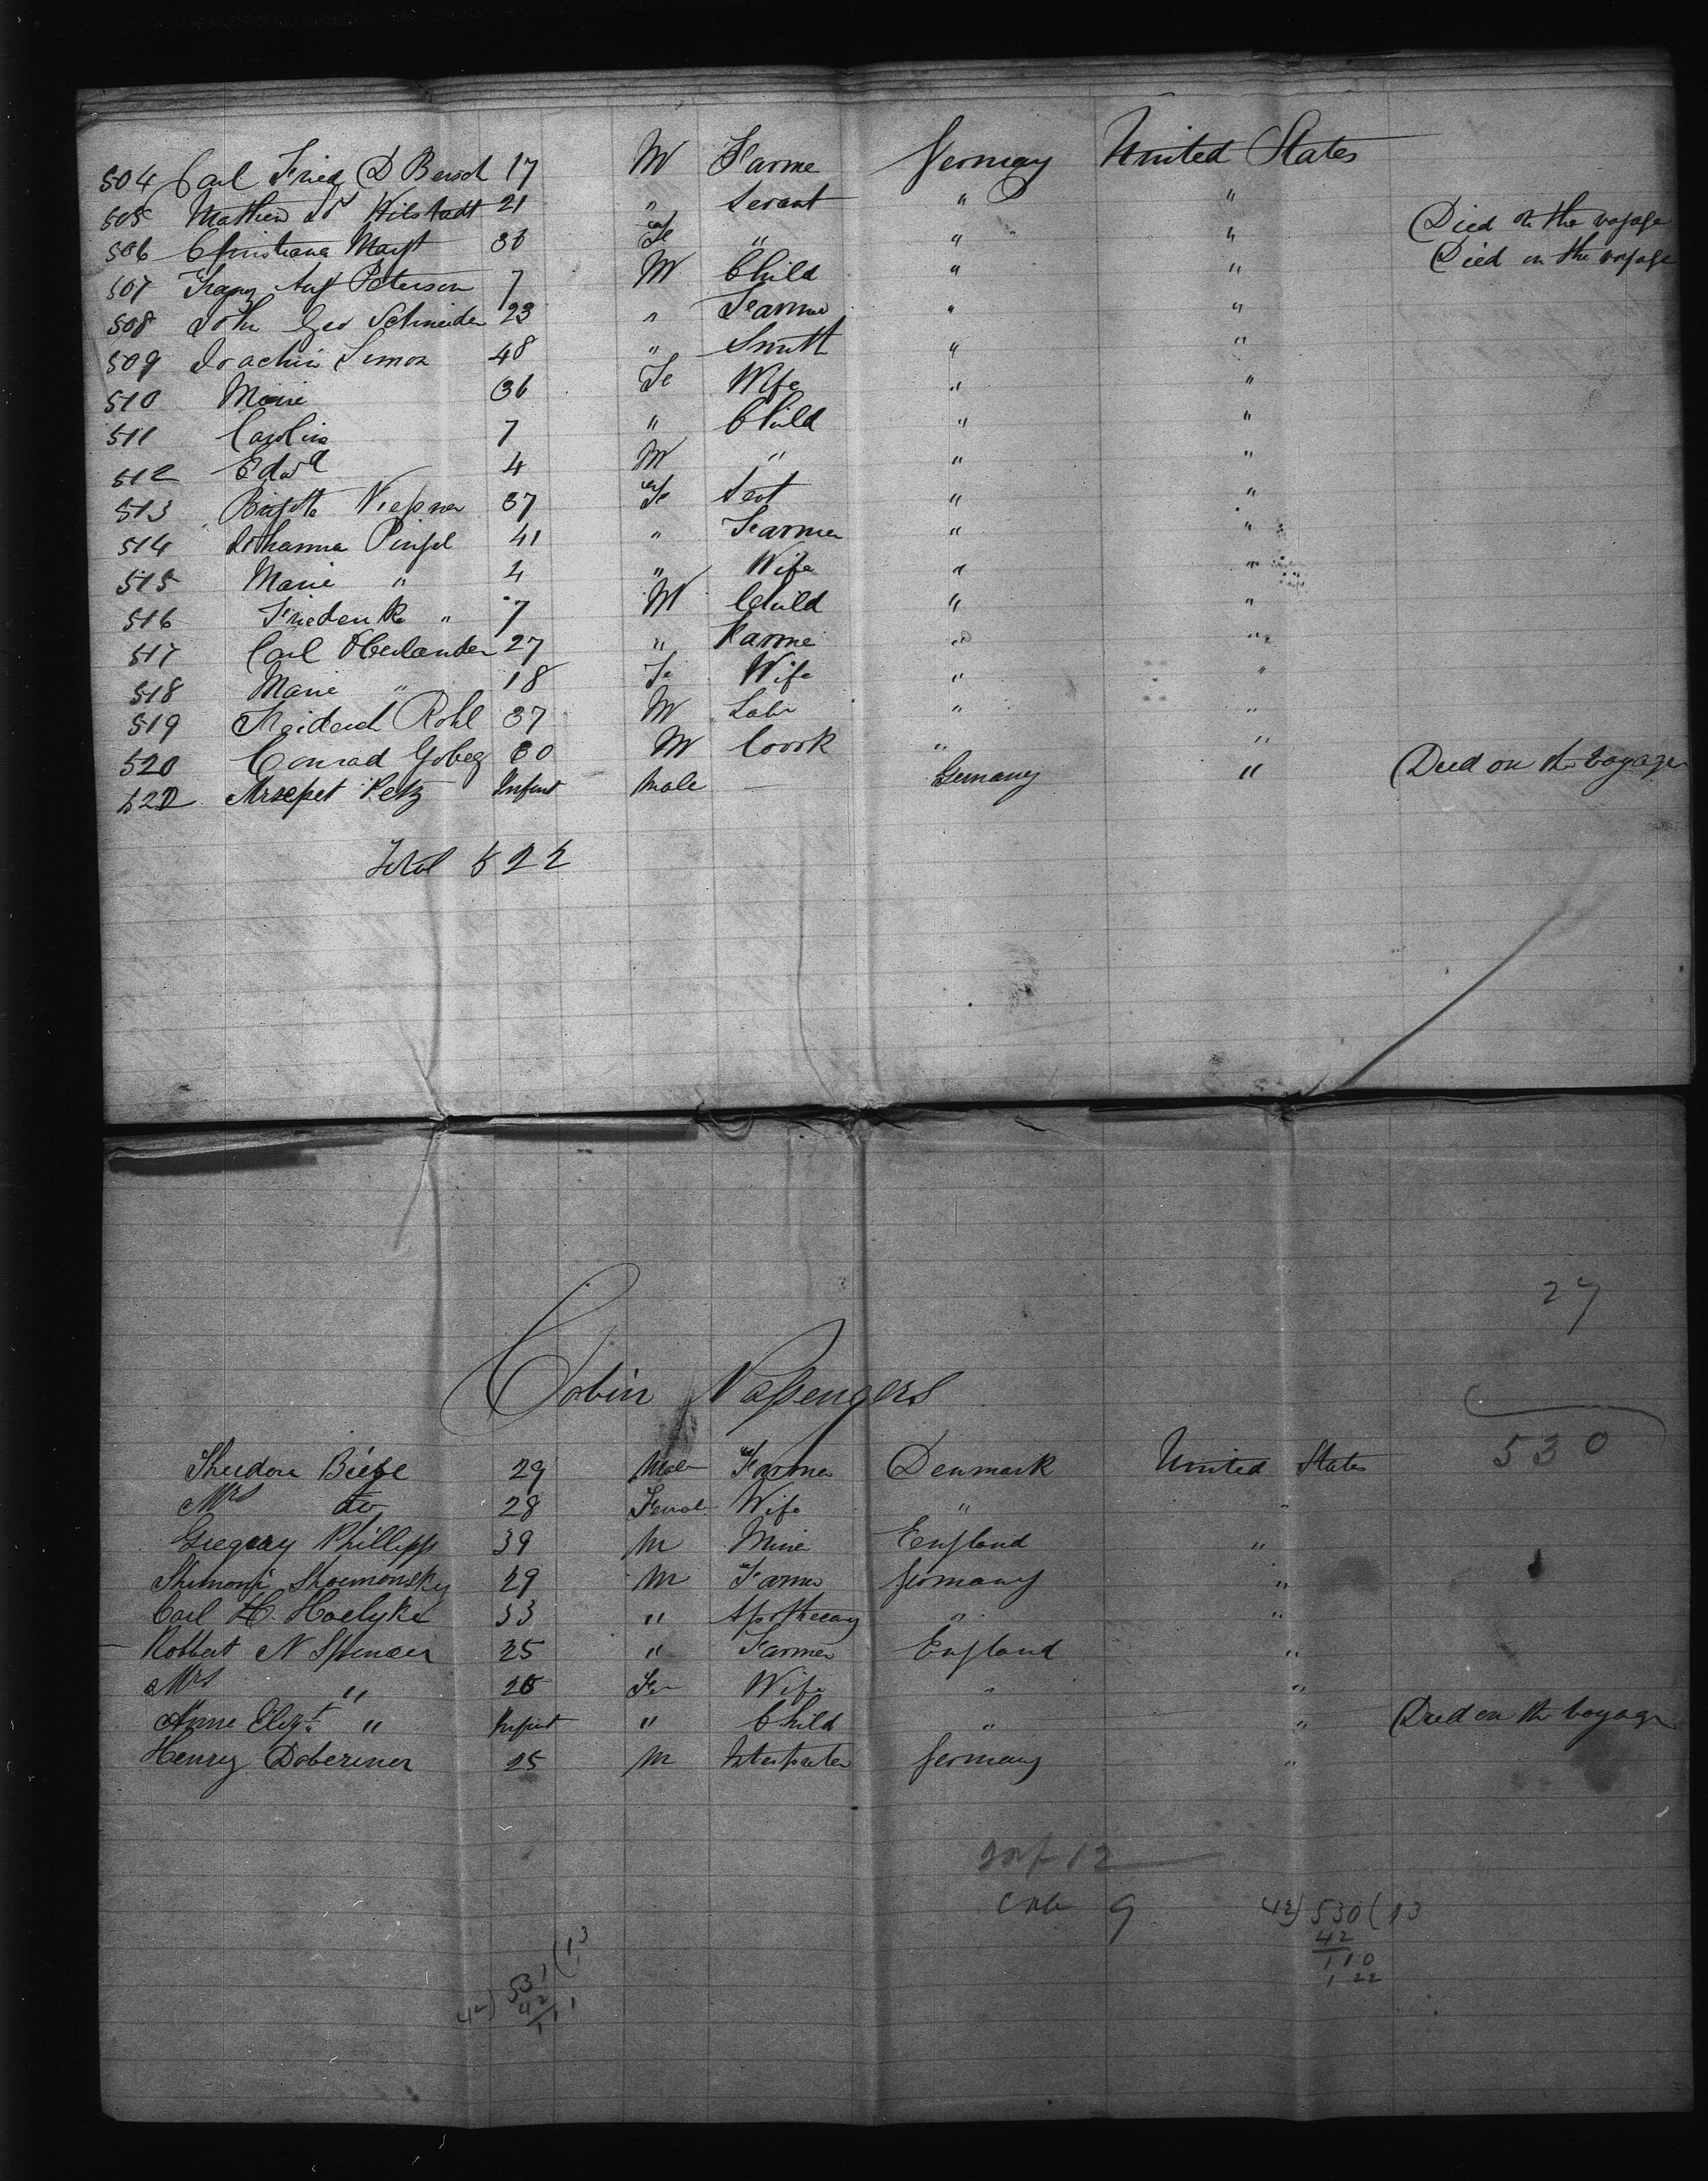 504 Carl Fried D Bersch 17 M Farme Germany United States
505 Mathew Wilstadt 21 " Servant " "
506 Christiana Mayt 36 Fe " " " Died on the voyage
507 Franz Aug Peterson 7 M Child " " Died on the voyage
508 Joh Geo Schneider 23 " Farme " "
509 Joachim Simon 48 " Smith " "
510 Marie 36 Fe Wife " "
511 Carolin 7 " Child " "
512 Edwd 4 M " " "
513 37 Fe Sevt " "
514 Johanna Pingel 41 " Farmer " "
515 Marie " 4 " Wife " "
516 Friederik " 7 M Child " "
517 Carl Oberlander 27 " Farme " "
518 Marie " 18 Fe Wife " "
519 Freidrich Rohl 37 M Labr " "
520 Conrad Gobez 30 M Coork " "
522 Petz Infant Male — Germany " Died on the voyage
Total 522
27
Cabin Passengers
530
Theodore 29 Male Farmer Denmark United States
Mrs do 28 Femal Wife " "
Gregory Phillipps 39 M Miner England "
Shoemonsky 29 M Farmer Germany "
Carl H. 33 " Apothecary " "
Robbert N Spencer 25 " Farmer England "
Mrs " 26 Fe Wife " "
Anne Elizt " Infant " Child " " Died on the voyage
Henry Doberiner 25 M Interpreter Germany "
Inf 12
Cab 9
42) 530 ( 13
42
110
122
42) 531 ( 13
42
111